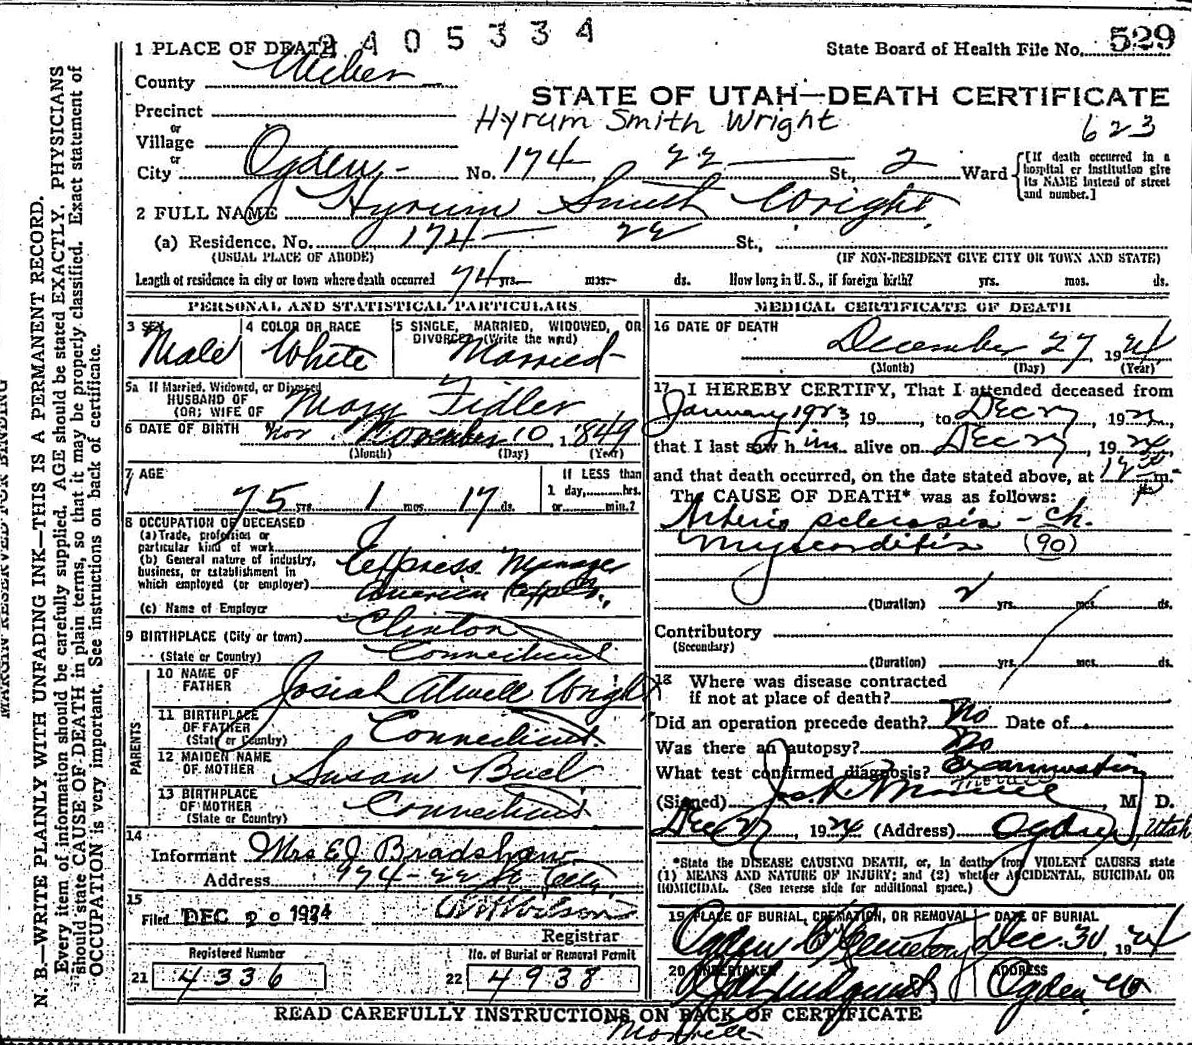 2405334
State Board of Health File No. 529
1 PLACE OF DEATH
County Weber
STATE OF UTAH—DEATH CERTIFICATE
Precinct
Hyrum Smith Wright 623
or
Village
or
City Ogden No. 174 22 St., 2 Ward [If death occurred in a hospital or institution give its NAME instead of street and number.]
2 FULL NAME Hyrum Smith Wright
(a) Residence, No. 174 22 St.,
(USUAL PLACE OF ABODE) (IF NON-RESIDENT GIVE CITY OR TOWN AND STATE)
Length of residence in city or town where death occurred 74 yrs. mos. ds. How long in U. S., if foreign birth? yrs. mos. ds.
PERSONAL AND STATISTICAL PARTICULARS
3 SEX Male
4 COLOR OR RACE White
5 SINGLE, MARRIED, WIDOWED, OR DIVORCED (Write the word) Married
5a If Married, Widowed, or Divorced
HUSBAND OF
(OR) WIFE OF Mary Fidler
6 DATE OF BIRTH Nov November 10, 1849
(Month) (Day) (Year)
7 AGE 75 yrs. 1 mos. 17 ds.
If LESS than
1 day, hrs.
or min.?
8 OCCUPATION OF DECEASED
(a) Trade, profession or
particular kind of work
(b) General nature of industry,
business, or establishment in
which employed (or employer)
Express Manager
American Express
(c) Name of Employer
9 BIRTHPLACE (City or town) Clinton
(State or Country) Connecticut
PARENTS
10 NAME OF
FATHER Josiah Atwell Wright
11 BIRTHPLACE
OF FATHER
(State or Country) Connecticut
12 MAIDEN NAME
OF MOTHER Susan Buel
13 BIRTHPLACE
OF MOTHER
(State or Country) Connecticut
14
Informant Mrs E J Bradshaw
Address 974-22 St City
15
Filed DEC 20 1924
Registrar
Registered Number
21 4336
No. of Burial or Removal Permit
22 4938
MEDICAL CERTIFICATE OF DEATH
16 DATE OF DEATH
December 27 1924
(Month) (Day) (Year)
17 I HEREBY CERTIFY, That I attended deceased from
January 1923, 19 , to Dec 27, 1924,
that I last saw him alive on Dec 27, 1924,
and that death occurred, on the date stated above, at m.
The CAUSE OF DEATH* was as follows:
Arterio sclerosis - Ch.
Myocarditis (90)
(Duration) 2 yrs. mos. ds.
Contributory
(Secondary)
(Duration) yrs. mos. ds.
18 Where was disease contracted
if not at place of death?
Did an operation precede death? No Date of
Was there an autopsy? No
What test confirmed diagnosis? Examination
(Signed) , M. D.
Dec 27, 1924 (Address) Ogden, Utah
*State the DISEASE CAUSING DEATH, or, in deaths from VIOLENT CAUSES state
(1) MEANS AND NATURE OF INJURY; and (2) whether ACCIDENTAL, SUICIDAL OR
HOMICIDAL. (See reverse side for additional space.)
19 PLACE OF BURIAL, CREMATION, OR REMOVAL Ogden City Cemetery
DATE OF BURIAL Dec. 30 1924
20 UNDERTAKER
ADDRESS Ogden
READ CAREFULLY INSTRUCTIONS ON BACK OF CERTIFICATE
MARGIN RESERVED FOR BINDING
N. B.—WRITE PLAINLY WITH UNFADING INK—THIS IS A PERMANENT RECORD.
Every item of information should be carefully supplied. AGE should be stated EXACTLY. PHYSICIANS
should state CAUSE OF DEATH in plain terms, so that it may be properly classified. Exact statement of
OCCUPATION is very important. See instructions on back of certificate.